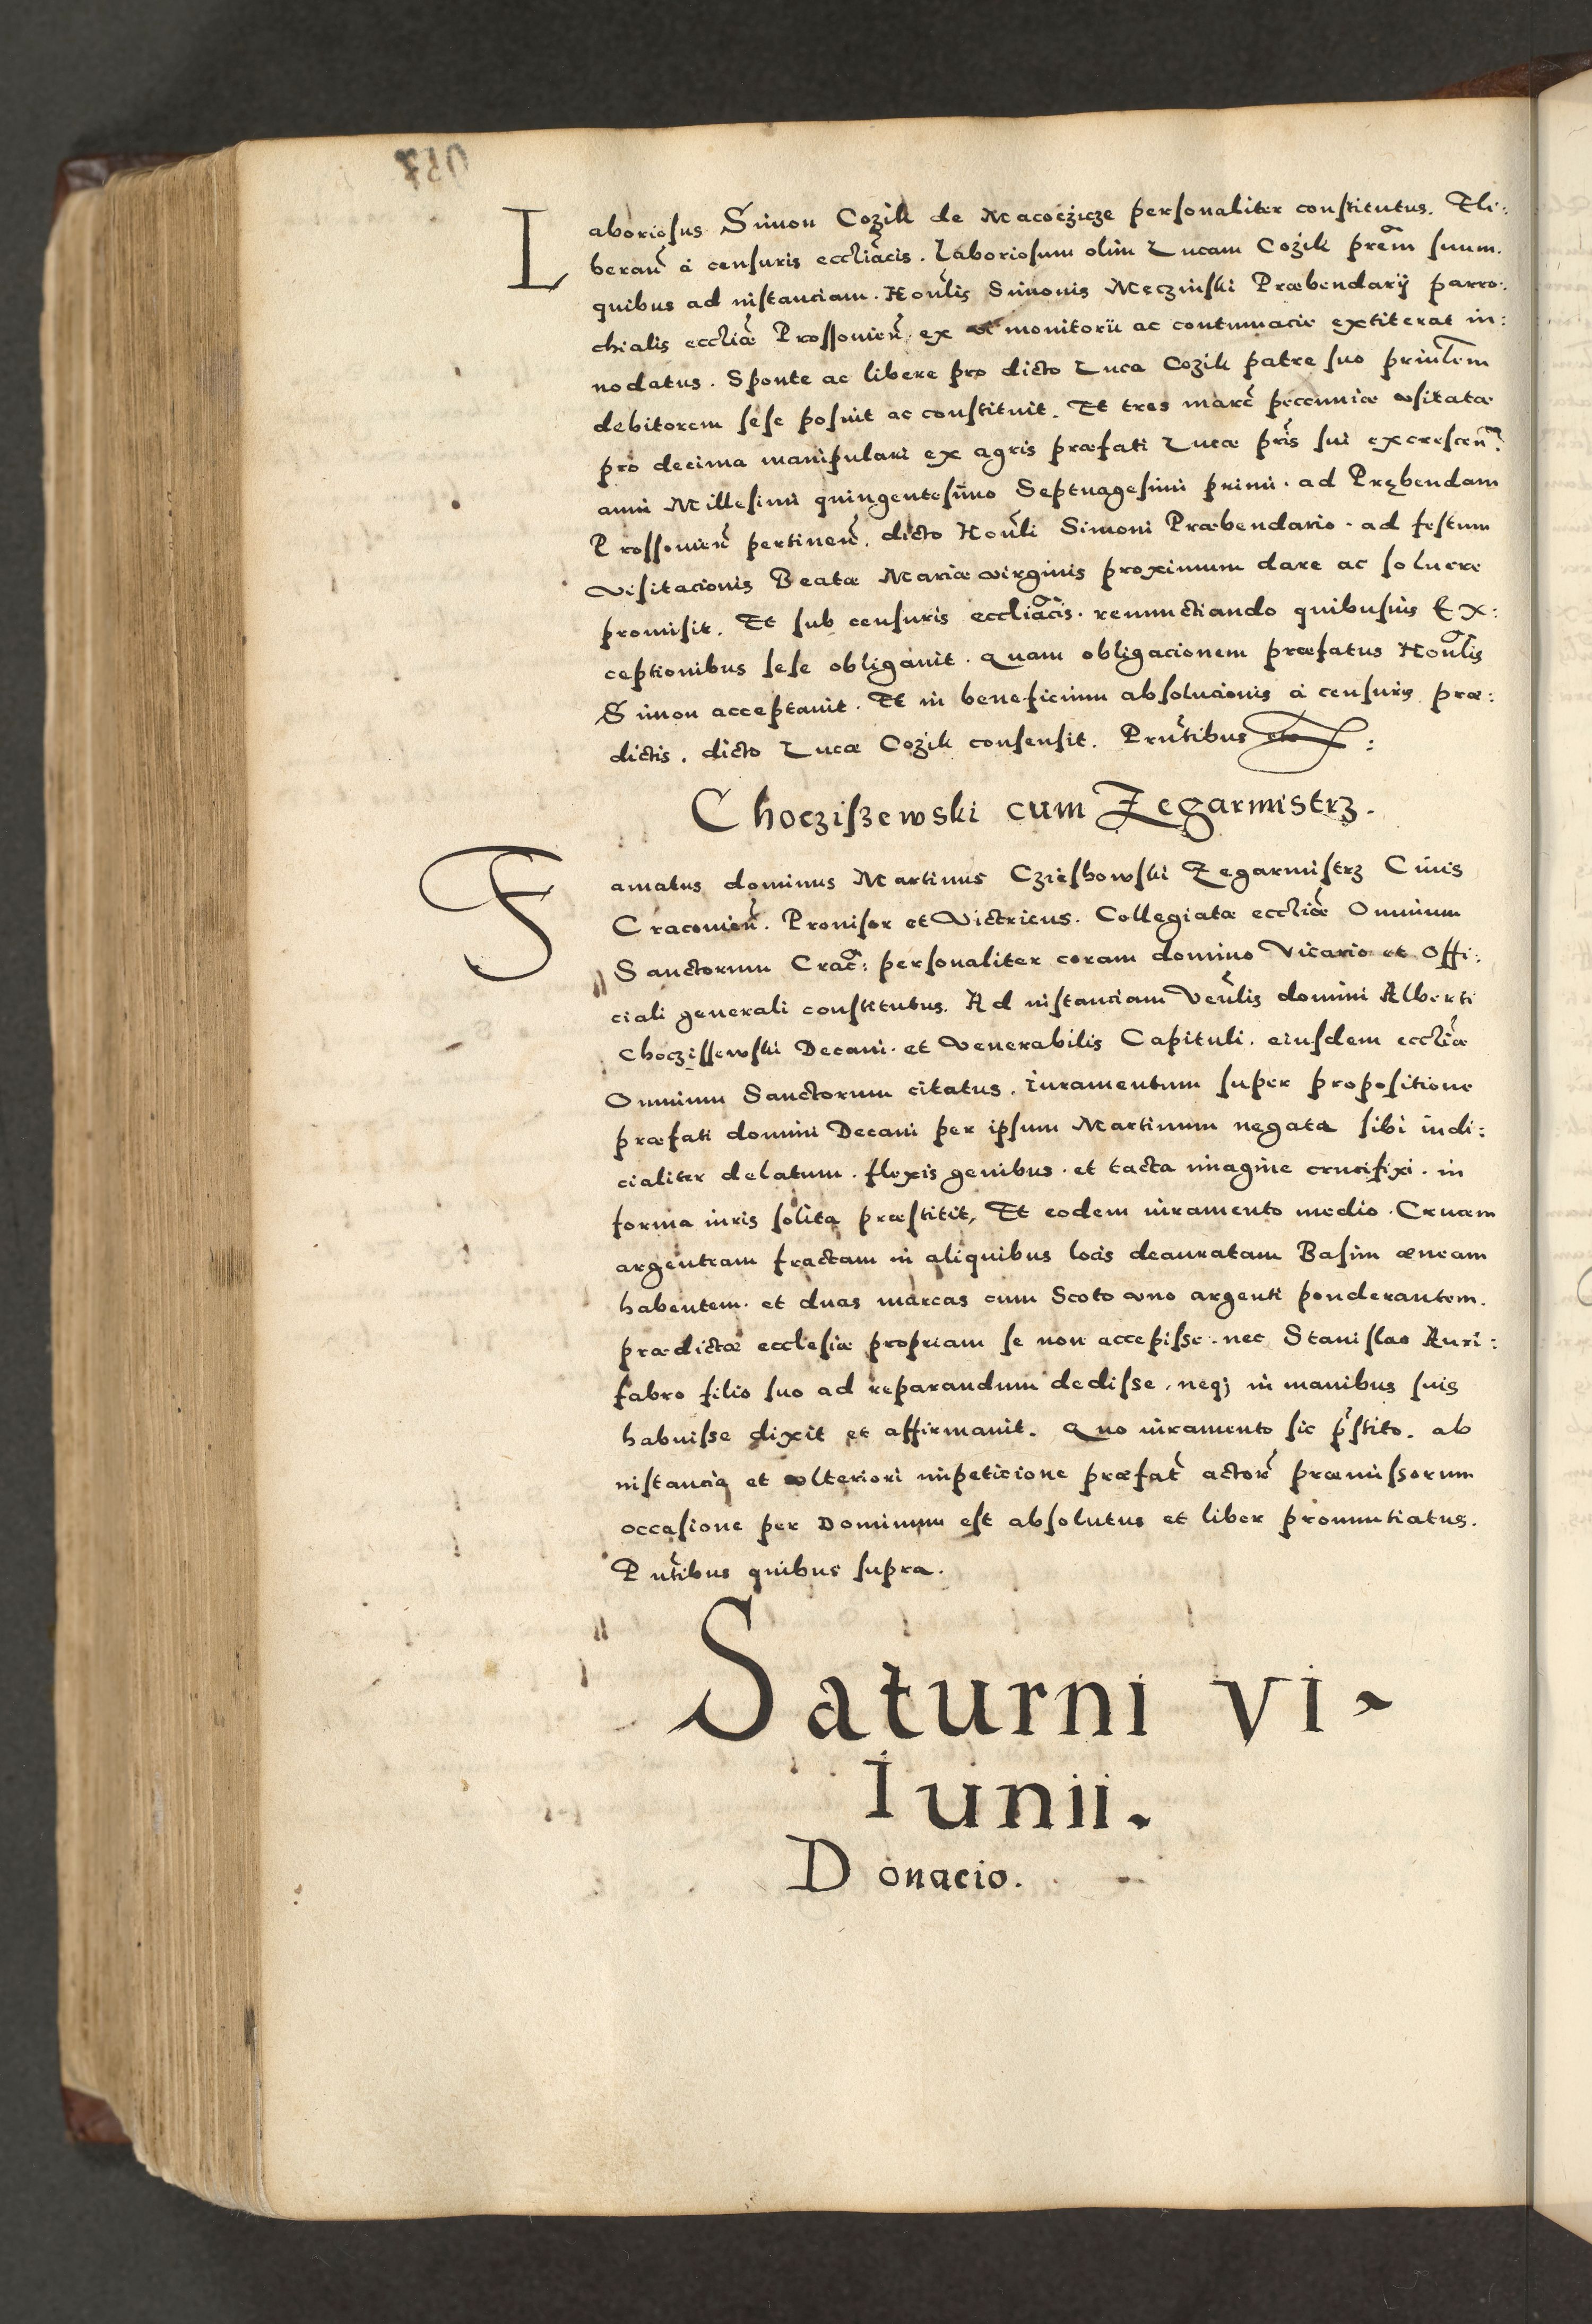 Laboriosus Simon Cozik de Macoczicze personaliter constitutus. Eli:
beran̄ à censuris eccłiacis. Laboriosum olim Lucam Cozik prēm suum.
quibus ad instanciam. Honłis Simonis Męczinski Præbendarÿ parro:
chialis eccłiæ Prossovien̄. ex vi monitorii ac contumacie extiterat in:
nodatus. Sponte ac libere pro dicto Luca Cozik patre suo prinłem
debitorem sese posuit ac constituit. Et tres marc̄ peccuniæ vsitatæ
pro decima manipulari ex agris præfati Lucæ pr̄is sui excrescen̄
anni Millesimi quingentesimo Septuagesimi primi. ad Prębendam
Prossovien̄ pertinen̄. dicto Honłi Simoni Præbendario. ad festum
visitacionis Beatæ Mariæ virginis proximum dare ac soluere
promisit. Et sub censuris eccłiacis. renunctiando quibusuis Ex:
ceptionibus sese obligauit. Quam obligacionem præfatus Honłis
Simon acceptauit. Et in beneficium absolucionis à censuris præ:
dictis. dicto Lucæ Cozik consensit. Prn̄tibus etc:
Chocziszewski cum Zegarmistrz.
Famatus dominus Martinus Czieskowski Zegarmistrz Ciuis
Cracouien̄. Prouisor et Victricus. Collegiatæ eccłiæ Omnium
Sanctorum Crac̄: personaliter coram domino Vicario et Offi:
ciali generali constitutus. Ad instanciam Venłis domini Alberti
Choczissewski Decani. et Venerabilis Capituli. eiusdem eccłiæ
Omnium Sanctorum citatus. iuramentum super propositione
præfati domini Decani per ipsum Martinum negata sibi iudi:
cialiter delatum. flexis genibus. et tacta imagine crucifixi. in
forma iuris solita præstitit, Et eodem iuramento medio. Crucem
argenteam fractam in aliquibus locis deauratam Basim æneam
habentem. et duas marcas cum Scoto vno argenti ponderantem.
prædictæ ecclesiæ propriam se non accepisse. nec Stanislao Auri:
fabro filio suo ad reparandum dedisse, neq; in manibus suis
habuisse dixit et affirmauit. Quo iuramento sic p̄stito. ab
instancia et vlteriori impeticione præfat̄ actor̄ præmissorum
occasione per Dominum est absolutus et liber pronunctiatus.
Pn̄tibus quibus supra.
Saturni vi
Iunii.
Donacio.